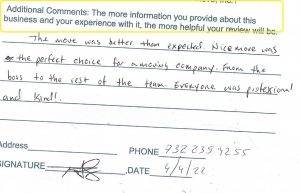 Additional Comments: The more information you provide about this
business and your experience with it, the more helpful your review will be.
The move was better than expected. Nicemove was
the perfect choice for a moving company. From the
boss to the rest of the team. Everyone was professional
and kind!.
Address
PHONE 732 235 4255
SIGNATURE
DATE 4/4/22